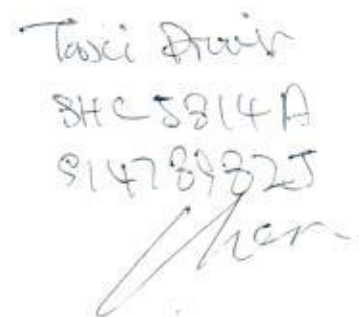 Taxi Driver
SHC5814A
S1478982J
Chan